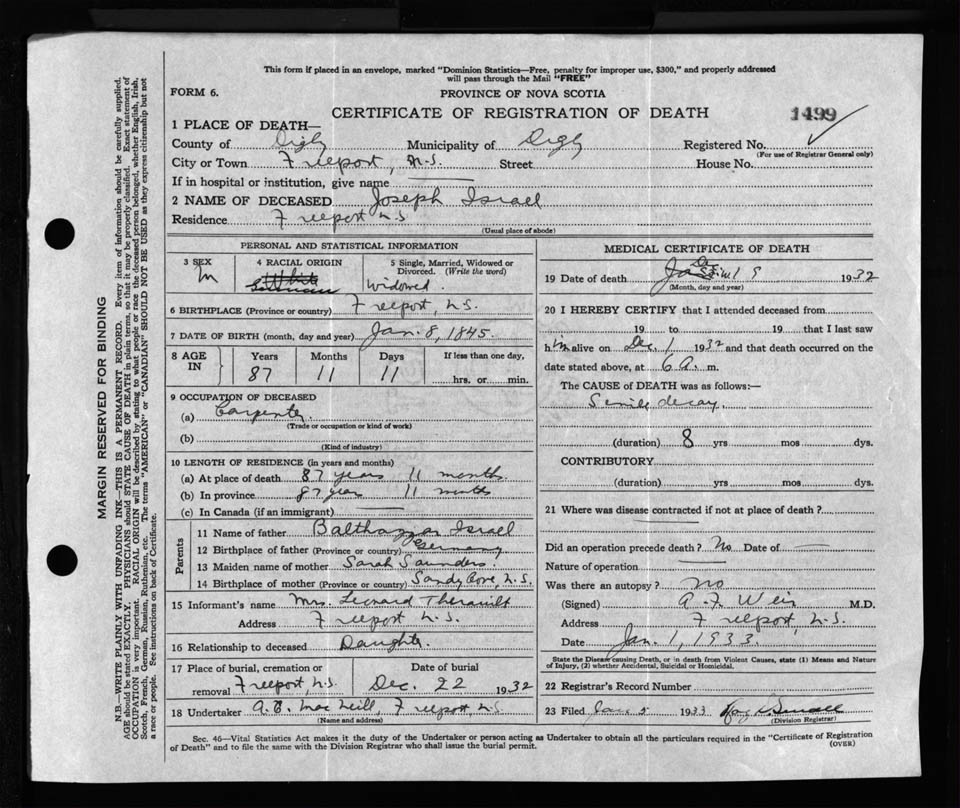 This form if placed in an envelope, marked "Dominion Statistics—Free, penalty for improper use, $300," and properly addressed
will pass through the Mail "FREE"
FORM 6.
PROVINCE OF NOVA SCOTIA
CERTIFICATE OF REGISTRATION OF DEATH
1499
1 PLACE OF DEATH—
County of Digby Municipality of Digby Registered No.
(For use of Registrar General only)
City or Town Freeport, N.S. Street House No.
If in hospital or institution, give name
2 NAME OF DECEASED Joseph Israel
Residence Freeport N.S.
(Usual place of abode)
PERSONAL AND STATISTICAL INFORMATION
3 SEX
M
4 RACIAL ORIGIN
White
5 Single, Married, Widowed or
Divorced. (Write the word)
Widowed.
6 BIRTHPLACE (Province or country) Freeport, N.S.
7 DATE OF BIRTH (month, day and year) Jan. 8, 1845.
8 AGE
IN
Years
87
Months
11
Days
11
If less than one day,
hrs. or min.
9 OCCUPATION OF DECEASED
(a) Carpenter
(Trade or occupation or kind of work)
(b)
(Kind of industry)
10 LENGTH OF RESIDENCE (in years and months)
(a) At place of death 87 years 11 months.
(b) In province 87 years 11 months
(c) In Canada (if an immigrant)
Parents
11 Name of father Balthazzar Israel
12 Birthplace of father (Province or country) Germany
13 Maiden name of mother Sarah Saunders.
14 Birthplace of mother (Province or country) Sandy Cove, N.S.
15 Informant's name Mrs. Leonard Therault
Address Freeport N.S.
16 Relationship to deceased Daughter.
17 Place of burial, cremation or
removal Freeport, N.S.
Date of burial
Dec. 22 1932
18 Undertaker A. E. MacNeill, Freeport, N.S.
(Name and address)
MEDICAL CERTIFICATE OF DEATH
19 Date of death 1932
(Month, day and year)
20 I HEREBY CERTIFY that I attended deceased from
19 to 19 that I last saw
h im alive on Dec. 1 1932 and that death occurred on the
date stated above, at 6 A. m.
The CAUSE of DEATH was as follows:—
Senile decay.
(duration) 8 yrs mos dys.
CONTRIBUTORY
(duration) yrs mos dys.
21 Where was disease contracted if not at place of death?
Did an operation precede death? No Date of
Nature of operation
Was there an autopsy? No
(Signed) A. F. Weir M.D.
Address Freeport, N.S.
Date Jan. 1, 1933.
State the Disease causing Death, or in death from Violent Causes, state (1) Means and Nature
of Injury, (2) whether Accidental, Suicidal or Homicidal.
22 Registrar's Record Number
23 Filed Jan 5 1933
(Division Registrar)
Sec. 46—Vital Statistics Act makes it the duty of the Undertaker or person acting as Undertaker to obtain all the particulars required in the "Certificate of Registration
of Death" and to file the same with the Division Registrar who shall issue the burial permit.
(OVER)
MARGIN RESERVED FOR BINDING
N.B.—WRITE PLAINLY WITH UNFADING INK—THIS IS A PERMANENT RECORD. Every item of information should be carefully supplied.
AGE should be stated EXACTLY. PHYSICIANS should STATE CAUSE OF DEATH in plain terms, so that it may be properly classified. Exact statement of
OCCUPATION is very important. RACIAL ORIGIN will be described by stating to what people or race the deceased person belonged, whether English, Irish,
Scotch, French, German, Russian, Ruthenian, etc. The terms "AMERICAN" or "CANADIAN" SHOULD NOT BE USED as they express citizenship but not
a race or people. See instructions on back of Certificate.